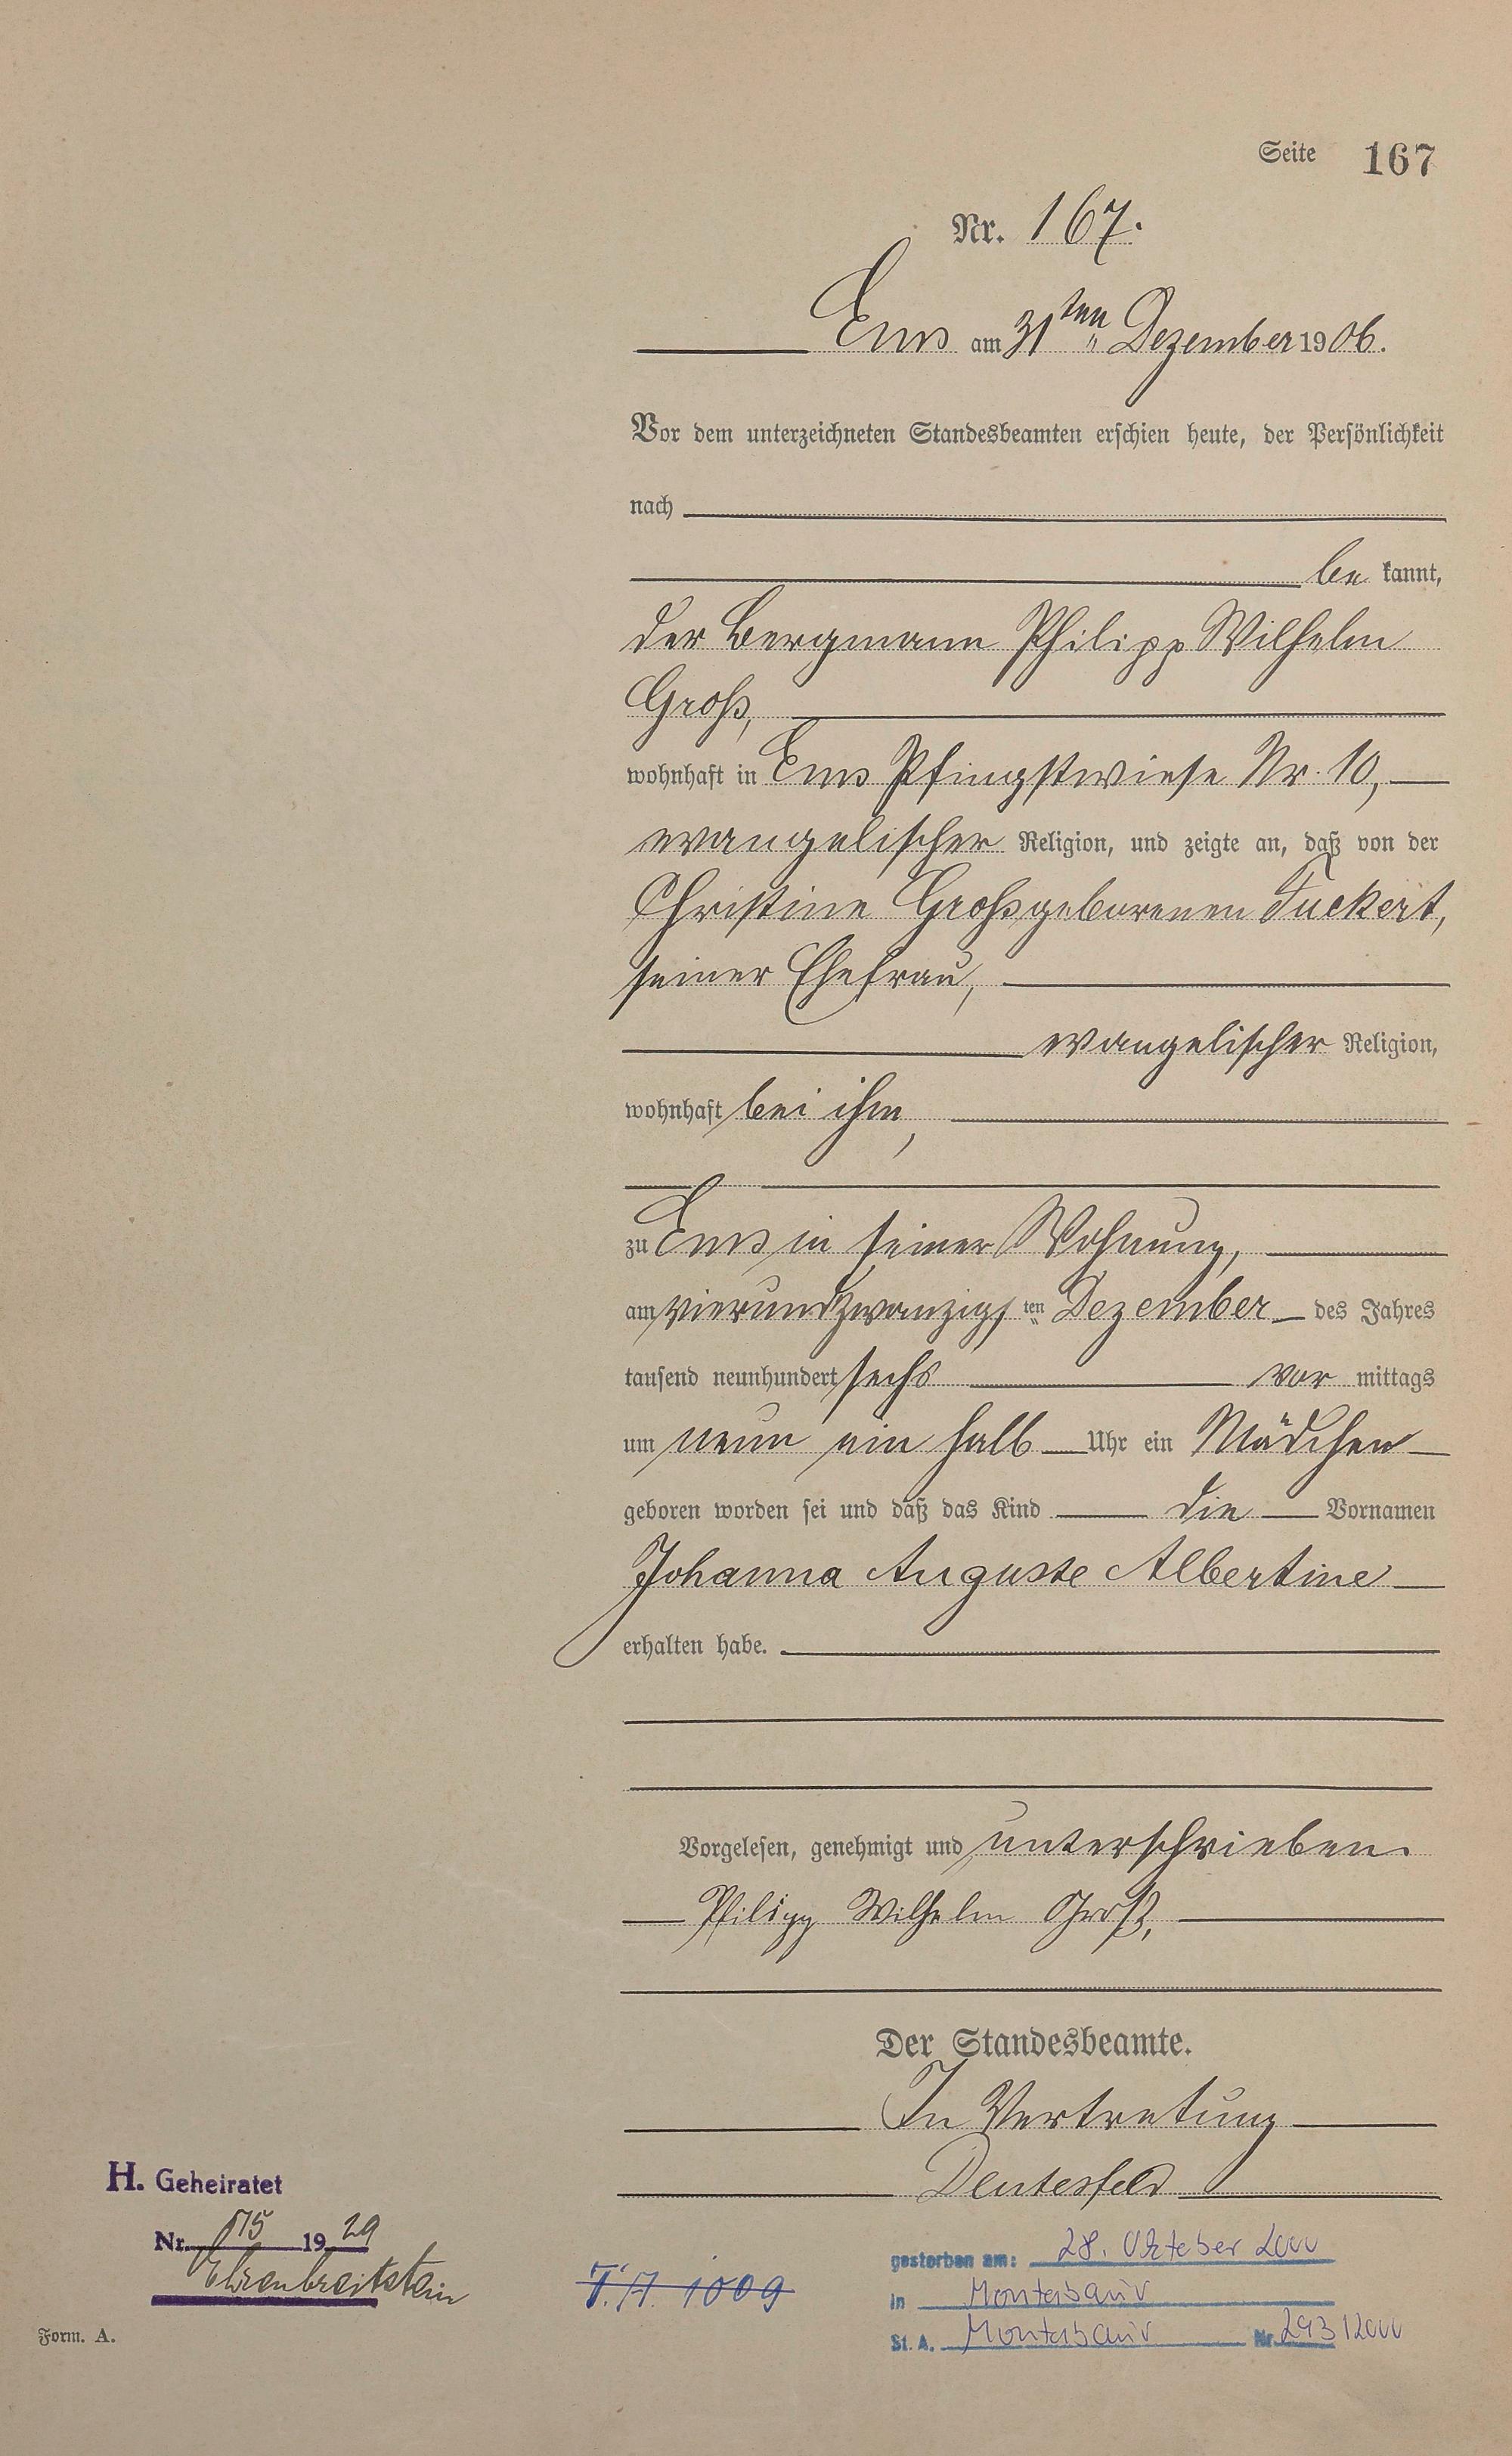 Seite 167
Nr. 167.
Ems am 31ten Dezember 1906.
Vor dem unterzeichneten Standesbeamten erschien heute, der Persönlichkeit
nach
be kannt,
der Bergmann Philipp Wilhelm
Groß,
wohnhaft in Ems Pfingstwiese Nr. 10,
evangelischer Religion, und zeigte an, daß von der
Christine Groß geborenen Tuckert,
seiner Ehefrau,
evangelischer Religion,
wohnhaft bei ihm,
zu Ems in seiner Wohnung,
am vierundzwanzigsten Dezember des Jahres
tausend neunhundert sechs vor mittags
um neun ein halb Uhr ein Mädchen
geboren worden sei und daß das Kind die Vornamen
Johanna Auguste Albertine
erhalten habe.
Vorgelesen, genehmigt und unterschrieben.
Philipp Wilhelm Groß,
Der Standesbeamte.
In Vertretung
H. Geheiratet
Nr. 1929
Ehrenbreitstein
T. A. 1009
gestorben am: 28. Oktober 2000
in Montabaur
St. A. Montabaur Nr. 293/2000
Form. A.